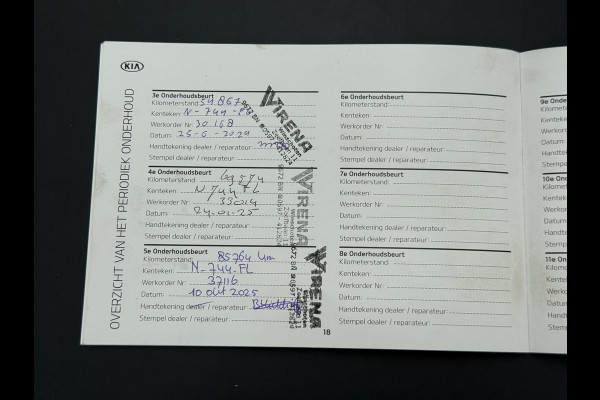 KIA
OVERZICHT VAN HET PERIODIEK ONDERHOUD
3e Onderhoudsbeurt
Kilometerstand: 54867
Kenteken: N-744-FL
Werkorder Nr: 30168
Datum: 25-6-2024
Handtekening dealer / reparateur:
Stempel dealer / reparateur:
WIRENA
4e Onderhoudsbeurt
Kilometerstand:
Kenteken: N744FL
Werkorder Nr: 33014
Datum: 24-01-25
Handtekening dealer / reparateur:
Stempel dealer / reparateur:
WIRENA
5e Onderhoudsbeurt
Kilometerstand: 85764 km
Kenteken: N-744-FL
Werkorder Nr: 37116
Datum: 10 okt 2025
Handtekening dealer / reparateur:
Stempel dealer / reparateur:
WIRENA
18
6e Onderhoudsbeurt
Kilometerstand:
Kenteken:
Werkorder Nr:
Datum:
Handtekening dealer / reparateur:
Stempel dealer / reparateur:
7e Onderhoudsbeurt
Kilometerstand:
Kenteken:
Werkorder Nr:
Datum:
Handtekening dealer / reparateur:
Stempel dealer / reparateur:
8e Onderhoudsbeurt
Kilometerstand:
Kenteken:
Werkorder Nr:
Datum:
Handtekening dealer / reparateur:
Stempel dealer / reparateur:
9e Onder
Kilome
Kente
Werk
Datu
Hand
Stem
10e On
Kilom
Kente
Werk
Datu
Hand
Stem
11e On
Kilom
Kente
Werko
Datu
Handt
Stemp